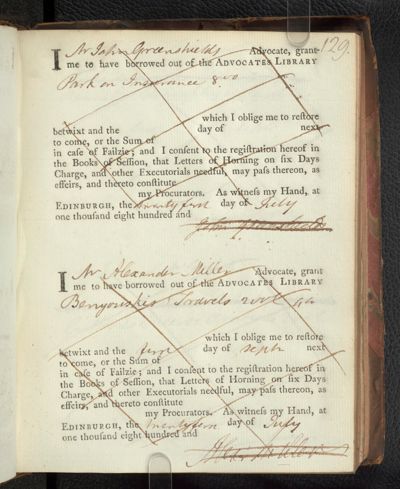 129.
I Mr John Greenshields Advocate, grant
me to have borrowed out of the ADVOCATES LIBRARY
Park on Insurance 8vo
which I oblige me to reſtore
betwixt and the day of next
to come, or the Sum of
in caſe of Failzie; and I conſent to the regiſtration hereof in
the Books of Seſſion, that Letters of Horning on ſix Days
Charge, and other Executorials needful, may paſs thereon, as
effeirs, and thereto conſtitute
my Procurators. As witneſs my Hand, at
EDINBURGH, the twenty first day of July
one thouſand eight hundred and
John Greenshields
I Mr Alexander Miller Advocate, grant
me to have borrowed out of the ADVOCATES LIBRARY
Benyowskis Travels 2 vol 4to
which I oblige me to reſtore
betwixt and the day of septr next
to come, or the Sum of
in caſe of Failzie; and I conſent to the regiſtration hereof in
the Books of Seſſion, that Letters of Horning on ſix Days
Charge, and other Executorials needful, may paſs thereon, as
effeirs, and thereto conſtitute
my Procurators. As witneſs my Hand, at
EDINBURGH, the day of July
one thouſand eight hundred and